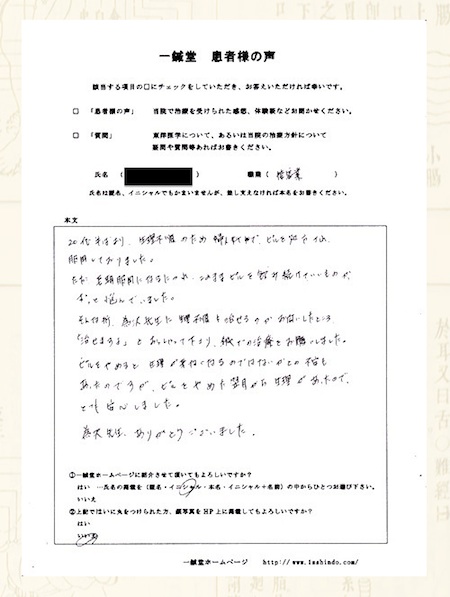 一鍼堂 患者様の声
該当する項目の□にチェックをしていただき、お答えいただければ幸いです。
□ 「患者様の声」 当院で治療を受けられた感想、体験談などお聞かせください。
□ 「質問」 東洋医学について、あるいは当院の治療方針について
疑問や質問等あればお書きください。
氏名 ( ) 職業 ( 営業 )
氏名は匿名、イニシャルでもかまいませんが、差し支えなければ本名をお書きください。
本文
20代半ばより、生理不順のため ピルを
服用しておりました。
ただ 長期服用になるため、このままピルを飲み続けていいものか
ずっと悩んでいました。
その時、先生に生理不順も治せるのかお伺いしたところ
「治せますよ」とおっしゃって下さり、鍼での治療をお願いしました。
ピルをやめると 生理が来なくなるのではないかとの不安も
あったのですが、ピルをやめた翌月から生理があったので、
とても安心しました。
先生、ありがとうございました。
①一鍼堂ホームページに紹介させて頂いてもよろしいですか？
はい …氏名の掲載を（匿名・イニシャル・本名・イニシャル＋名前）の中からひとつお選び下さい。
いいえ
②上記ではいに丸をつけられた方、顔写真をHP上に掲載してもよろしいですか？
はい
いいえ
一鍼堂ホームページ http://www.1sshindo.com/